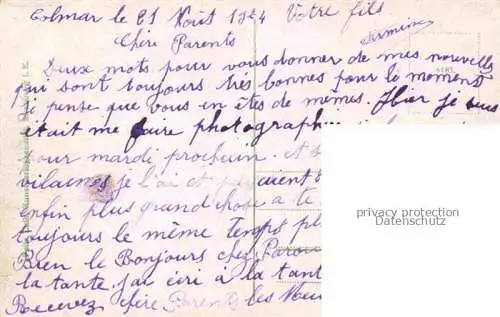 Colmar le 21 Août 1924 Votre fils
Chère Parents
Deux mots pour vous donner de mes nouvelles
qui sont toujours très bonnes pour le moment
je pense que vous en êtes de mêmes. Hier je suis
était me faire photograph...
pour mardi prochain. et s
vilaines je l'ai et aient
enfin plus grand chose a te
toujours le même temps pl
Bien le Bonjours chez
la tante j'ai écri a la tant
Recevez chère Parents les
privacy protection
Datenschutz